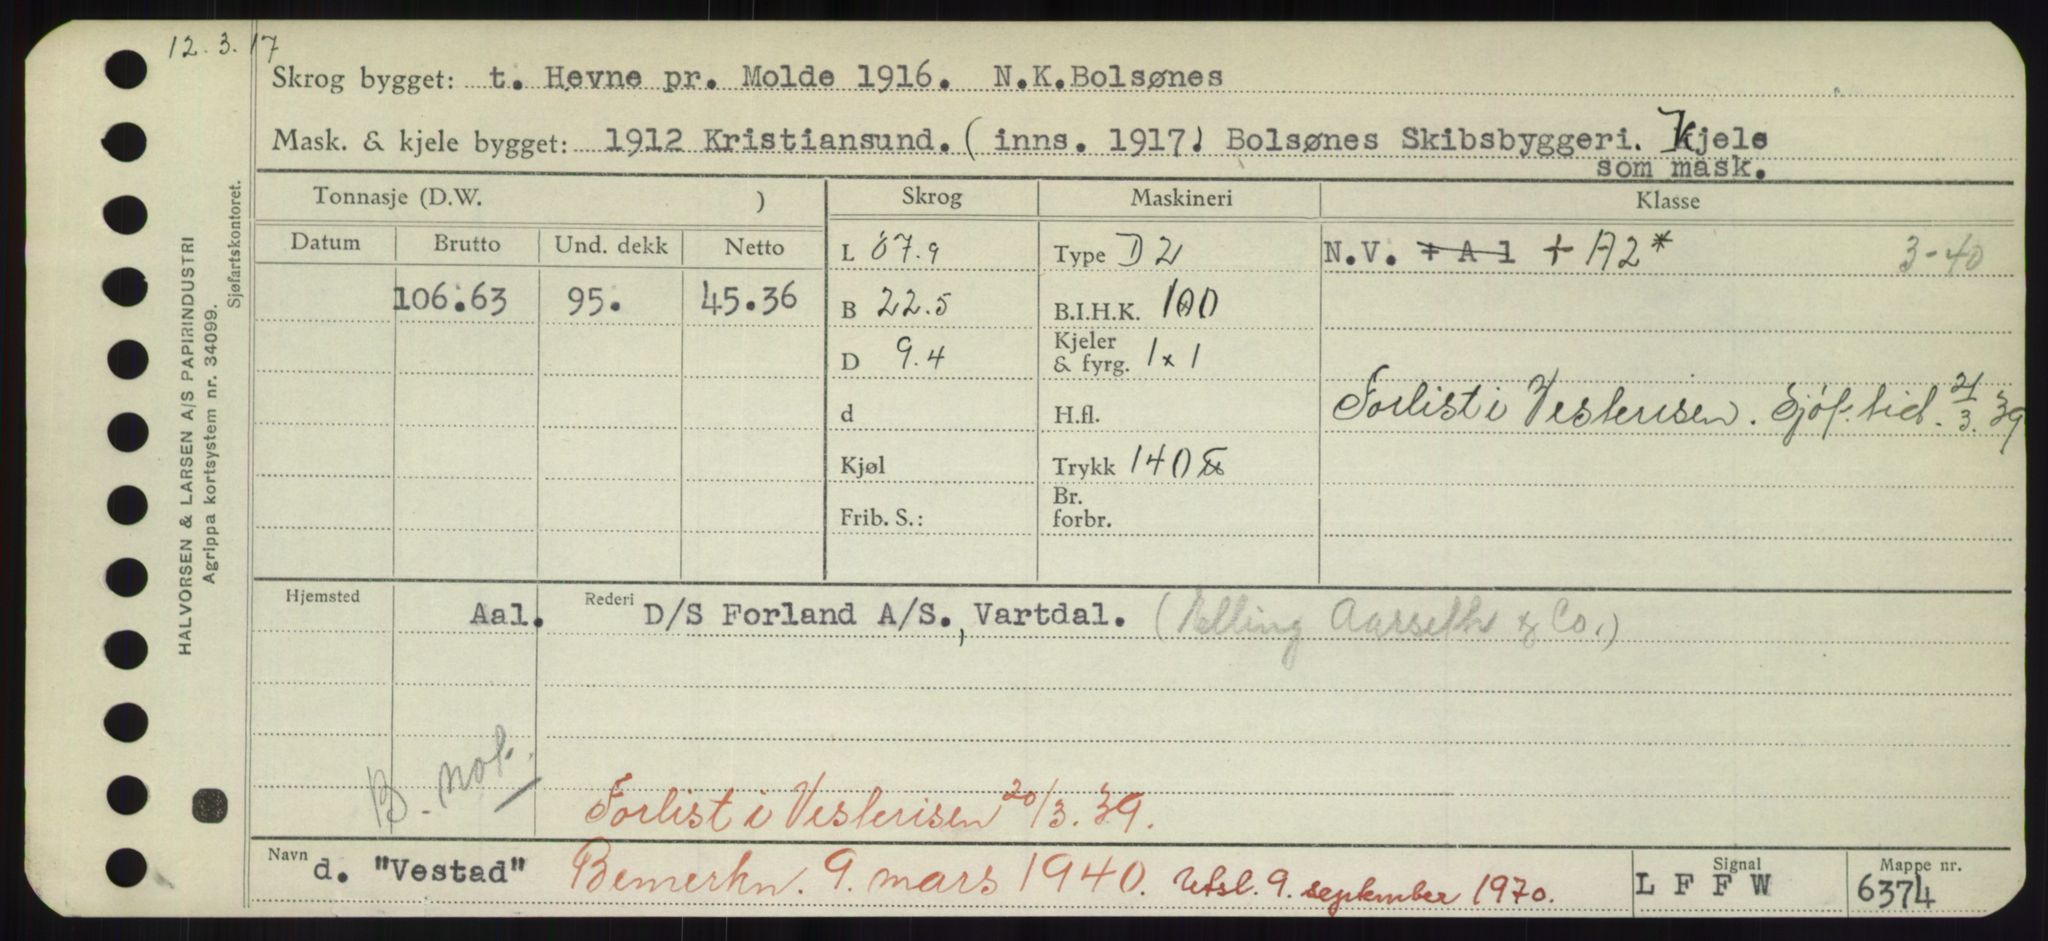 12.3.17
Skrog bygget: t. Hevne pr. Molde 1916. N.K.Bolsønes
Mask. & kjele bygget: 1912 Kristiansund. (inns. 1917) Bolsønes Skibsbyggeri. Kjele
som mask.
Tonnasje (D.W. ) Skrog Maskineri Klasse
Datum Brutto Und. dekk Netto L 87.9 Type D 2 N.V. + A 1 + A2* 3-40
106.63 95. 45.36 B 22.5 B.I.H.K. 100
D 9.4 Kjeler & fyrg. 1x1
d H.fl. Forlist i Vesterisen. Sjøf.tid. 21/3.39
Kjøl Trykk 140
Frib. S.: Br. forbr.
Hjemsted Aal. Rederi D/S Forland A/S., Vartdal. (Elling Aarseth & Co.)
B. not.
Forlist i Vesterisen 20/3.39.
Navn d. "Vestad" Bemerkn. 9. mars 1940. Utsl. 9. september 1970. Signal L F F W Mappe nr. 6374
HALVORSEN & LARSEN A/S PAPIRINDUSTRI
Agrippa kortsystem nr. 34099.
Sjøfartskontoret.